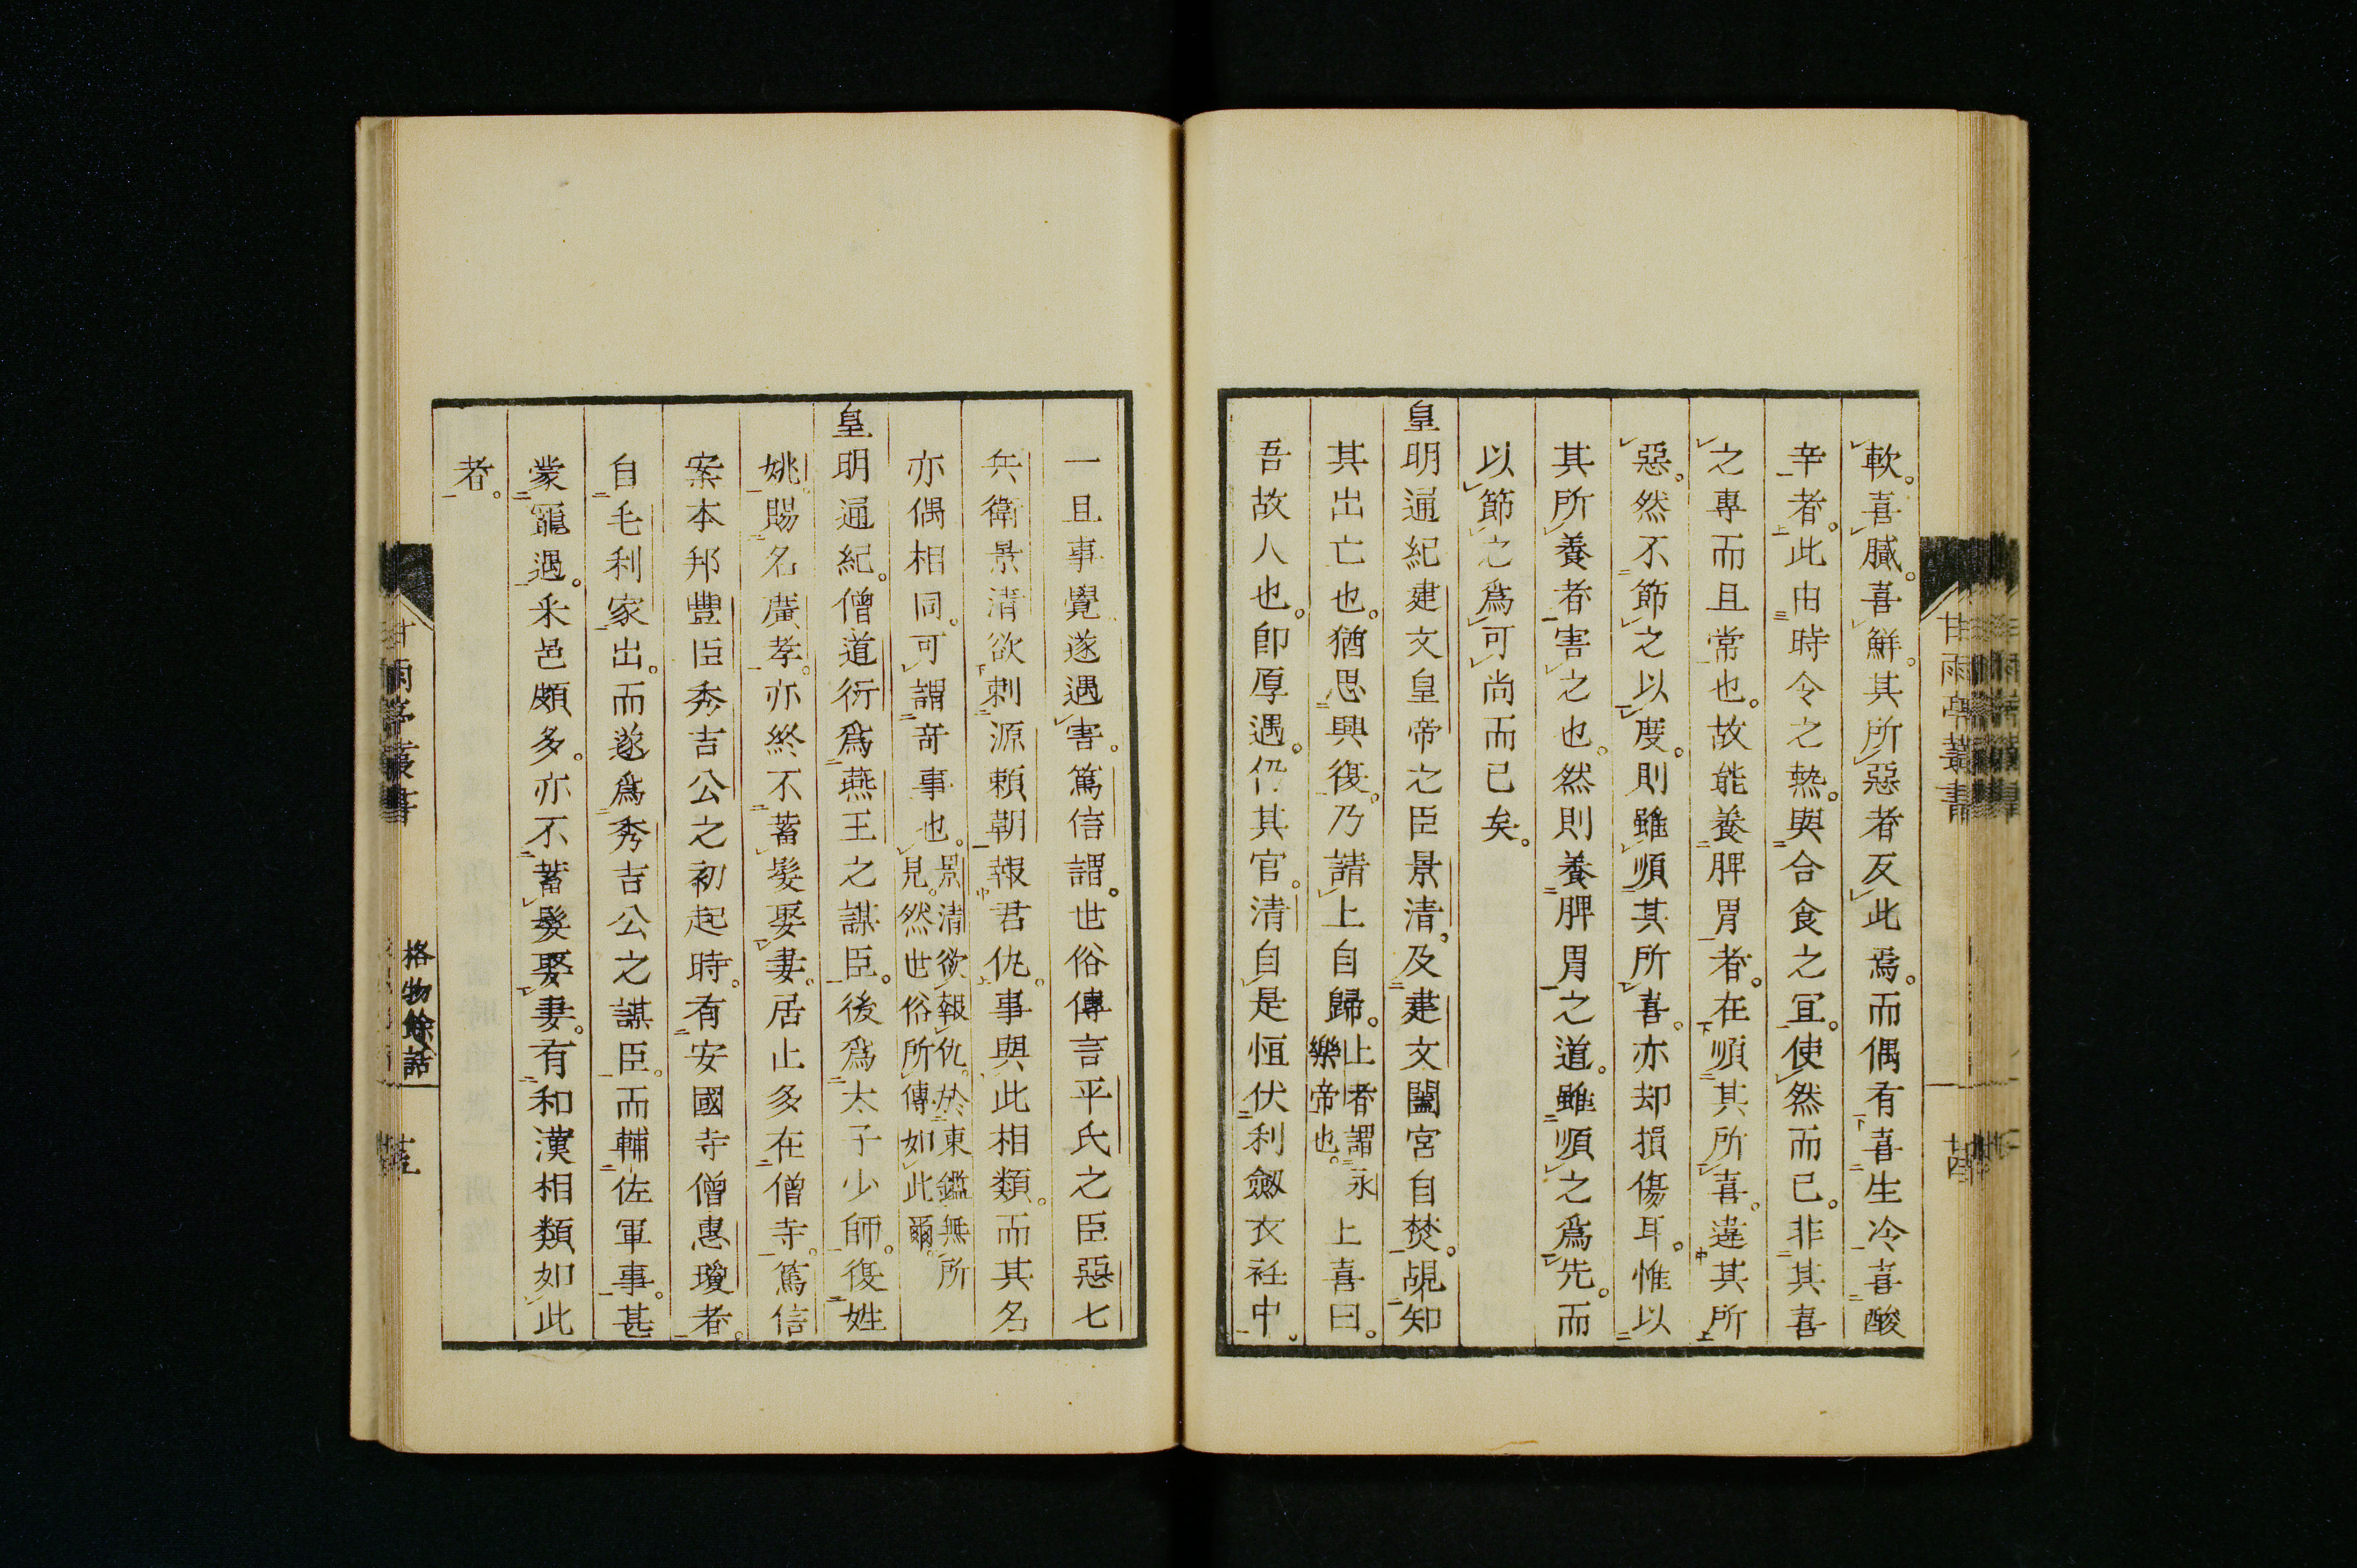 軟。喜膩。喜鮮。其所惡者反此焉。而偶有喜生冷喜酸
辛者。此由時令之熱。與合食之宜。使然而已。非其喜
之專而且常也。故能養脾胃者。在順其所喜。違其所
惡。然不節之以度。則雖順其所喜。亦却損傷耳。惟以
其所養者害之也。然則養脾胃之道。雖順之爲先。而
以節之爲可尚而已矣。
皇明通紀建文皇帝之臣景清。及建文闔宮自焚。覘知
其出亡也。猶思興復。乃請上自歸。上者謂永樂帝也。上喜曰。
吾故人也。卽厚遇。仍其官。清自是恒伏利劔衣衽中。
甘雨亭叢書
一旦事覺遂遇害。篤信謂。世俗傳言平氏之臣惡七
兵衛景清欲刺源賴朝報君仇。事與此相類。而其名
亦偶相同。可謂奇事也。景清欲報仇。於東鑑無所見。然世俗所傳如此爾。
皇明通紀。僧道衍爲燕王之謀臣。後爲太子少師。復姓
姚。賜名廣孝。亦終不蓄髮娶妻。居止多在僧寺。篤信
案本邦豐臣秀吉公之初起時。有安國寺僧惠瓊者。
自毛利家出。而遂爲秀吉公之謀臣。而輔佐軍事。甚
蒙寵遇。釆邑頗多。亦不蓄髮娶妻。有和漢相類如此
者。
甘雨亭叢書
格物餘話